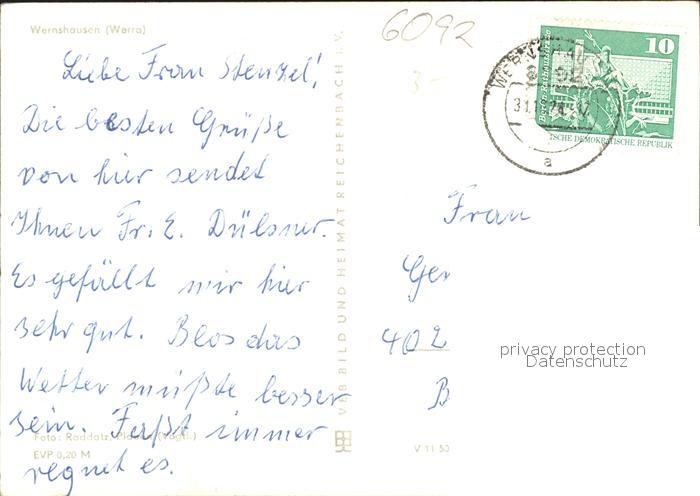 Wernshausen (Werra)
6092
Liebe Frau Stenzel!
Die besten Grüße
von hier sendet
Ihnen Fr. E. Dülsner.
Es gefällt mir hier
sehr gut. Blos das
Wetter müßte besser
sein. Faßt immer
regnet es.
Foto: Raddatz, Plauen (Vogtl.)
EVP 0,20 M
VEB BILD UND HEIMAT REICHENBACH I. V.
V 11 50
3-
10
Berlin-Rathausstraße
DEUTSCHE DEMOKRATISCHE REPUBLIK
a
Frau
Ger
402
B
privacy protection
Datenschutz